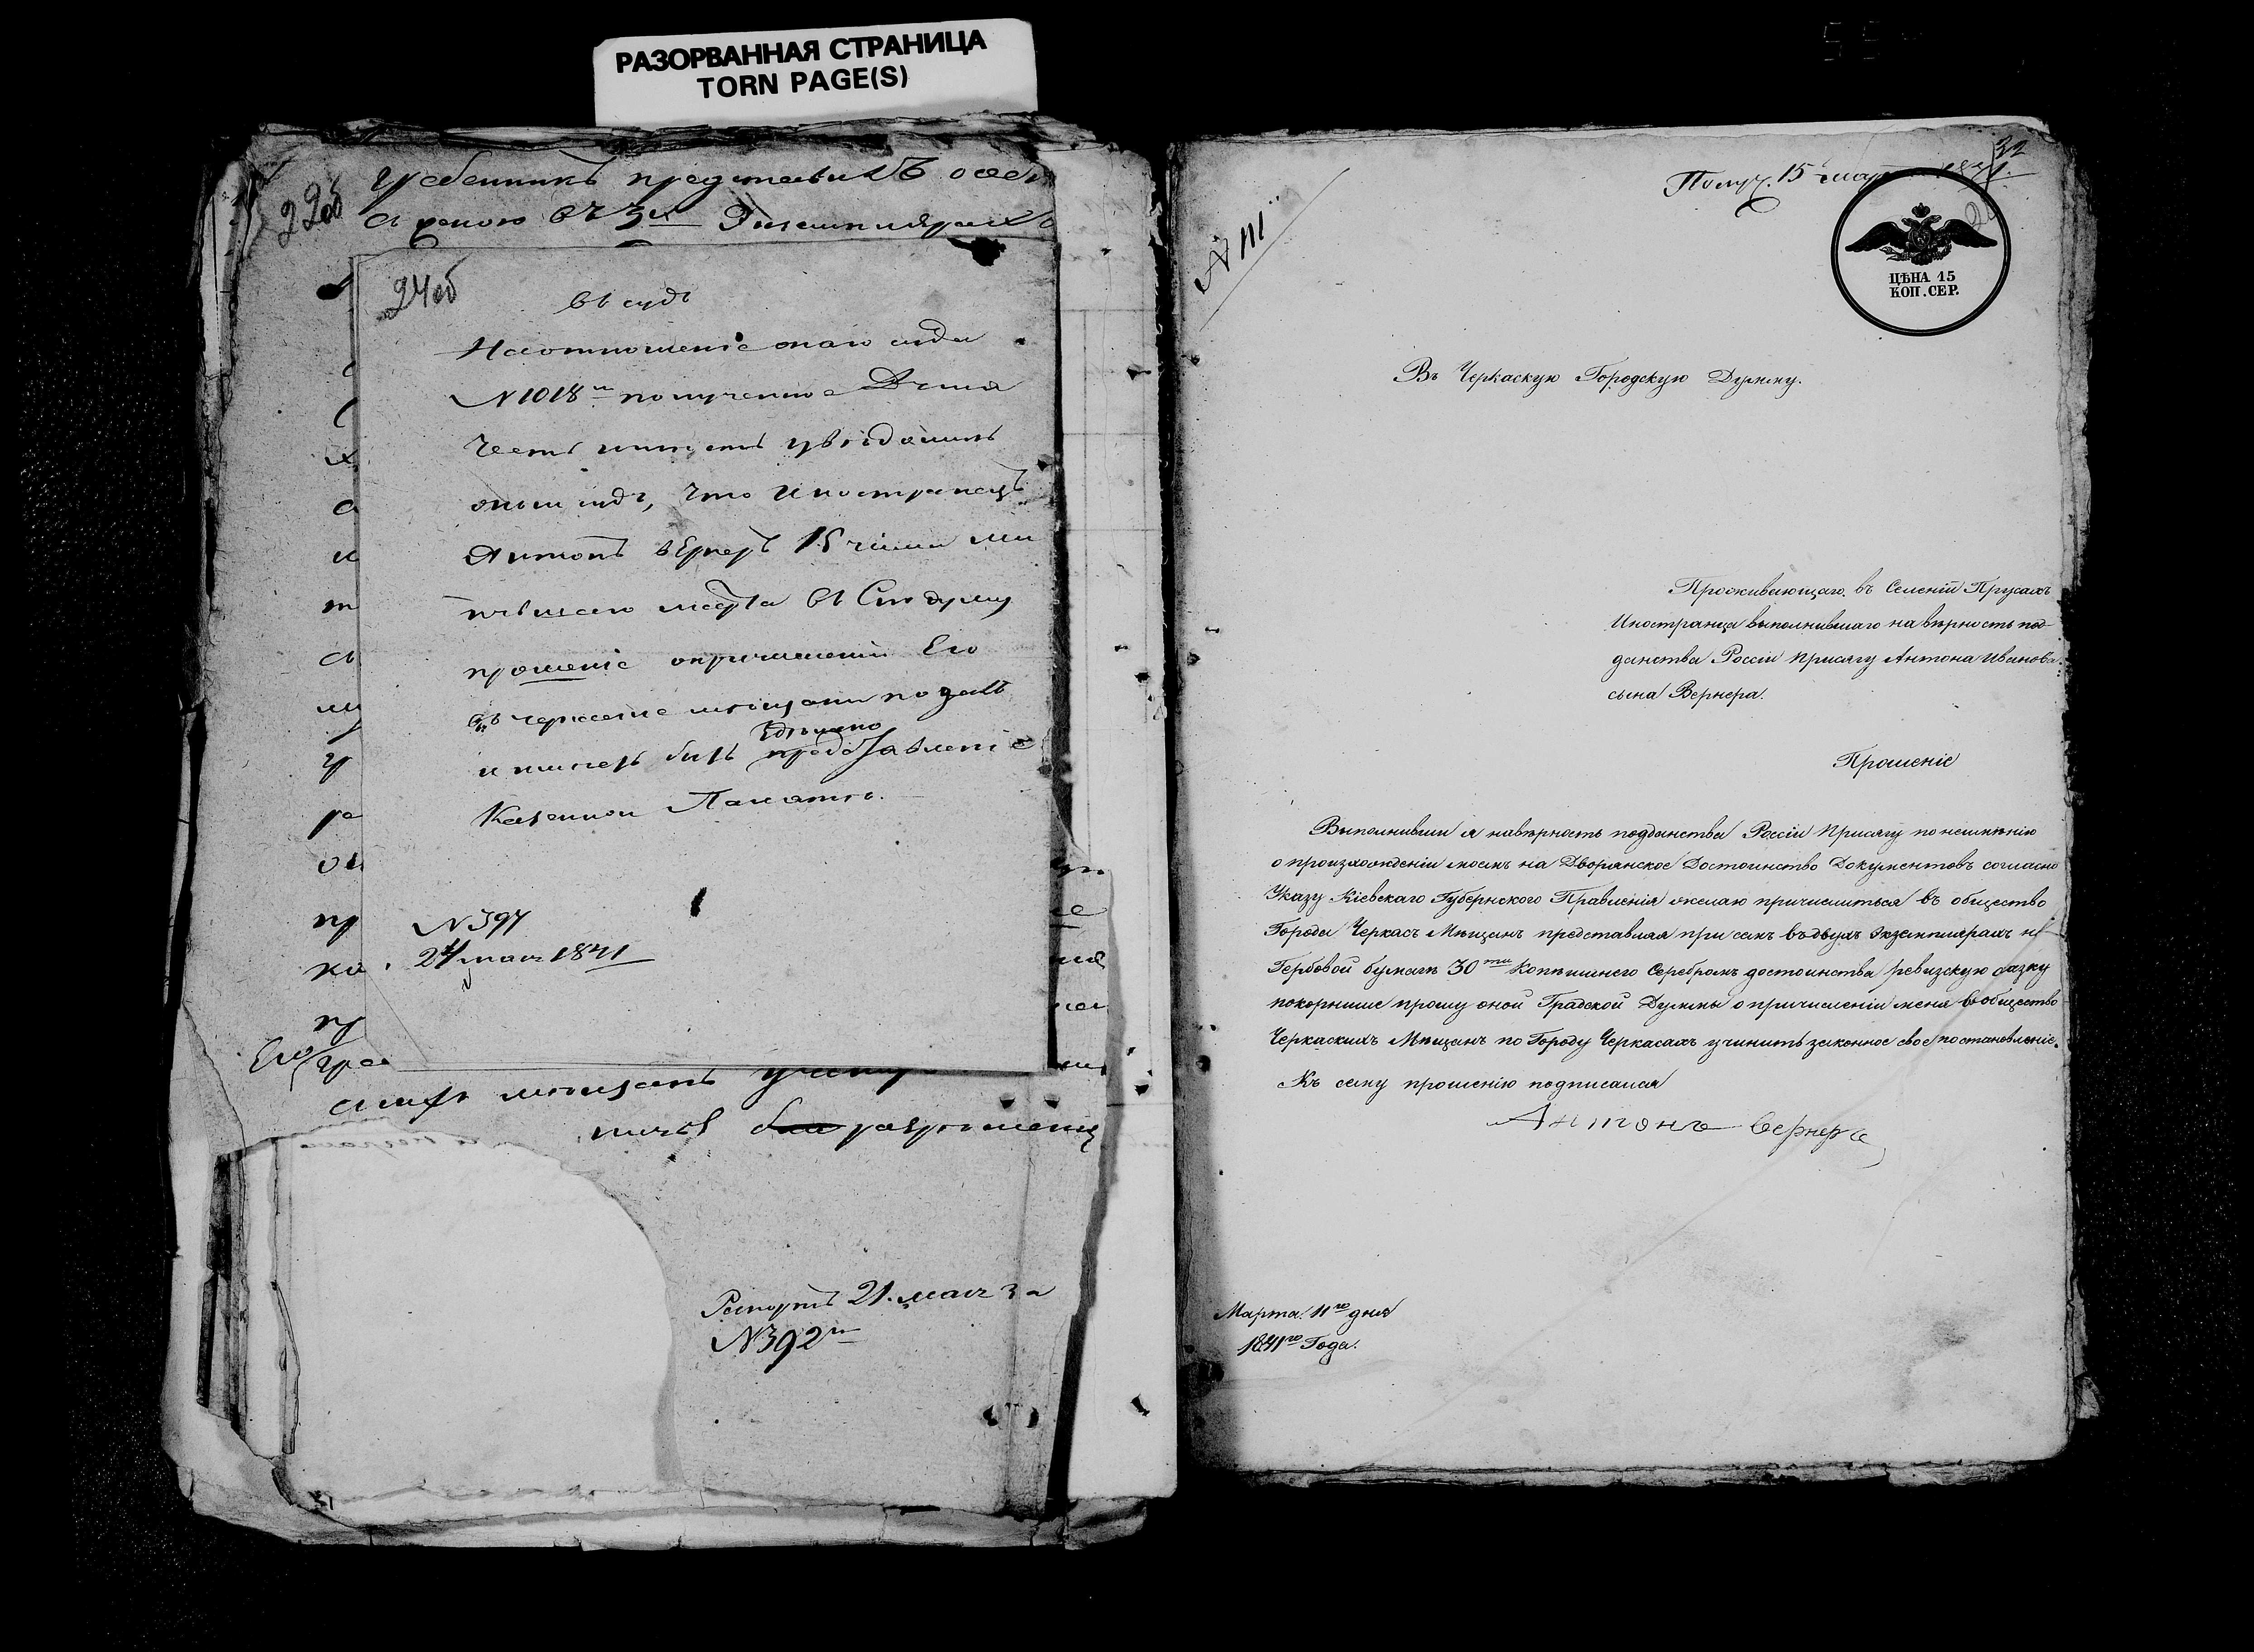 РАЗОРВАННАЯ СТРАНИЦА
TORN PAGE(S)
22об
въ 3х Экземплярахъ
24об
въ судъ
На отношеніе онаго суда
N 1018м полученное Дума
честь имѣетъ увѣдомить
оный судъ, что иностранецъ
Антонъ вернеръ 15 числа ми
нувшаго марта въ Сію думу
прошеніе о причисленіи Его
въ черкаскіе мѣщане подалъ
и теперь
Казенной Палатѣ.
N 397
24 мар 1841
ка
пр
Его гра
Рапортъ 21. мар за
N 392м
Получ. 15 мар 1841.
32
N 111
ЦѢНА 15
КОП. СЕР.
Въ Черкаскую Городскую Думму.
Проживающаго въ Селеніи Прусахъ
Иностранца выполнившаго на вѣрность под-
данства Россіи присягу Антона Иванова
сына Вернера.
Прошеніе
Выполнивши я навѣрность подданства Россіи Присягу по неимѣнію
о произхожденіи моемъ на Дворянское Достоинство Документовъ согласно
Указу Кіевскаго Губернского Правленія желаю причислиться въ общество
Города Черкасъ Мѣщанъ представляя при семъ въ двухъ экземплярахъ на
Гербовой бумагѣ 30ти Копѣишнего Серебромъ достоинства ревизскую сказку
покорнѣише прошу оной Градской Думмы о причисленіи меня вобщество
Черкаскихъ Мѣщанъ по Городу Черкасахъ учинить законное свое постановленіе.
Къ сему прошенію подписался
Антонъ Вернеръ
Марта 11го дня
1841го Года.